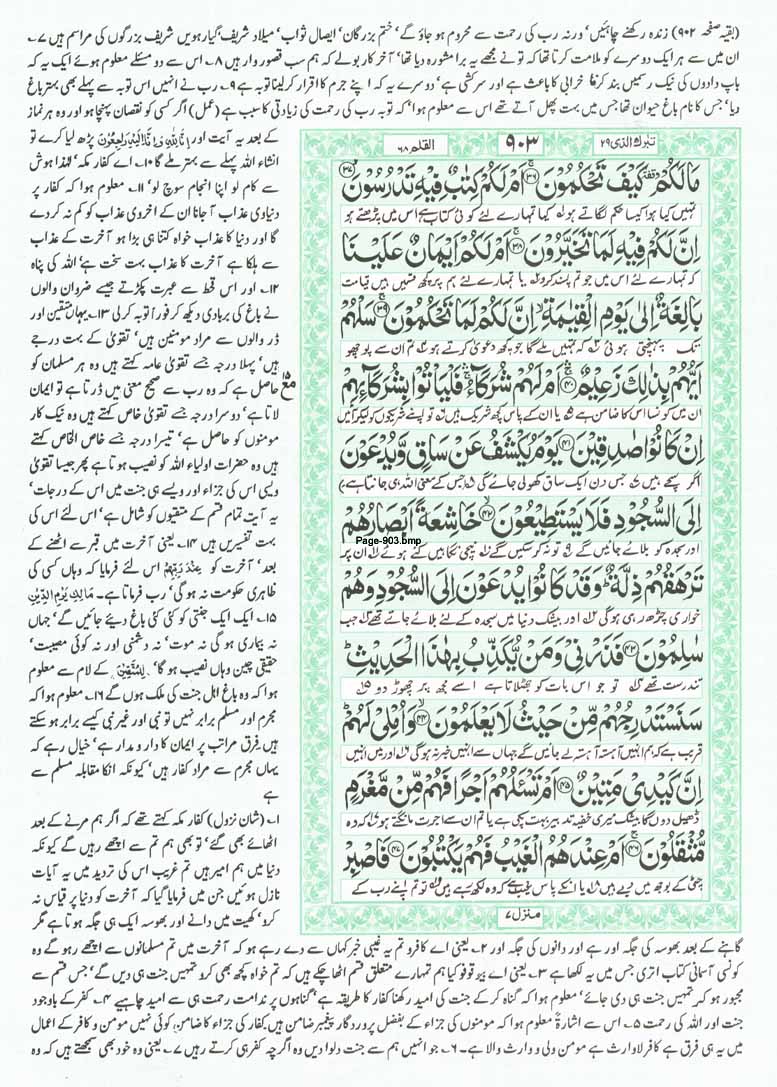 (بقیہ صفحہ ۹۰۲) زندہ رکھنے چاہئیں' ورنہ رب کی رحمت سے محروم ہو جاؤ گے' ختم بزرگان' ایصال ثواب' میلاد شریف' گیارہویں شریف بزرگوں کی مراسم ہیں ۷۔
ان میں سے ہر ایک دوسرے کو ملامت کرتا تھا کہ تو نے مجھے یہ برا مشورہ دیا تھا' آخر کار بولے کہ ہم سب قصوروار ہیں ۸۔ اس سے دو مسئلے معلوم ہوئے ایک یہ کہ
باپ دادوں کی نیک رسمیں بند کرنا خرابی کا باعث ہے اور سرکشی ہے' دوسرے یہ کہ اپنے جرم کا اقرار کرلینا توبہ ہے ۹۔ رب نے انہیں اس توبہ سے پہلے بھی بہتر باغ
دیا' جس کا نام باغ حیوان تھا جس میں بہت پھل آتے تھے اس سے معلوم ہوا' کہ توبہ رب کی رحمت کی زیادتی کا سبب ہے (عمل) اگر کسی کو نقصان پہنچا ہو اور وہ ہر نماز
کے بعد یہ آیت اور اِنَّا لِلّٰہِ وَاِنَّآ اِلَیْہِ رٰجِعُوْنَ پڑھ لیا کرے تو
انشاء اللہ پہلے سے بہتر ملے گا ۱۰۔ اے کفار مکہ' لہٰذا ہوش
سے کام لو اپنا انجام سوچ لو' ۱۱۔ معلوم ہوا کہ کفار پر
دنیاوی عذاب آجانا ان کے اخروی عذاب کو کم نہ کردے
گا اور دنیا کا عذاب خواہ کتنا ہی بڑا ہو آخرت کے عذاب
سے ہلکا ہے آخرت کا عذاب بہت سخت ہے' اللہ کی پناہ
۱۲۔ اور اس قحط سے عبرت پکڑتے جیسے ضروان والوں
نے باغ کی بربادی دیکھ کر فوراً توبہ کرلی ۱۳۔ یہاں متقین اور
ڈر والوں سے مراد مومنین ہیں' تقویٰ کے بہت درجے
ہیں' پہلا درجہ جسے تقویٰ عامہ کہتے ہیں وہ ہر مسلمان کو
حاصل ہے کہ وہ رب سے صحیح معنی میں ڈرتا ہے تو ایمان
لاتا ہے' دوسرا درجہ جسے تقویٰ خاص کہتے ہیں وہ نیک کار
مومنوں کو حاصل ہے' تیسرا درجہ جسے خاص الخاص کہتے
ہیں وہ حضرات اولیاء اللہ کو نصیب ہوتا ہے پھر جیسا تقویٰ
ویسی اس کی جزاء اور ویسے ہی جنت میں اس کے درجات'
یہ آیت تمام قسم کے متقیوں کو شامل ہے' اس لئے اس کی
بہت تفسیریں ہیں ۱۴۔ یعنی آخرت میں قبر سے اٹھنے کے
بعد' آخرت کو عِنْدَ رَبِّہِمْ اس لئے فرمایا کہ وہاں کسی کی
ظاہری حکومت نہ ہوگی' رب فرماتا ہے۔ مَالِکِ یَوْمِ الدِّیْنِ
۱۵۔ ایک ایک جنتی کو کئی کئی باغ دیئے جائیں گے' جہاں
نہ بیماری ہوگی نہ موت' نہ دشمنی اور نہ کوئی مصیبت'
حقیقی چین وہاں نصیب ہو گا' لِلْمُتَّقِیْنَ کے لام سے معلوم
ہوا کہ وہ باغ اہل جنت کی ملک ہوں گے ۱۶۔ معلوم ہوا کہ
مجرم اور مسلم برابر نہیں تو نبی اور غیر نبی کیسے برابر ہو سکتے
ہیں فرق مراتب پر ایمان کا دار و مدار ہے' خیال رہے کہ
یہاں مجرم سے مراد کفار ہیں' کیونکہ انکا مقابلہ مسلم سے
ہے
۱۔ (شان نزول) کفار مکہ کہتے تھے کہ اگر ہم مرنے کے بعد
اٹھائے بھی گئے' تو بھی ہم تم سے اچھے رہیں گے کیونکہ
دنیا میں ہم امیر ہیں تم غریب اس کی تردید میں یہ آیات
نازل ہوئیں جن میں فرمایا گیا کہ آخرت کو دنیا پر قیاس نہ
کرو' کھیت میں دانے اور بھوسہ ایک ہی جگہ ہوتا ہے مگر
تبٰرک الذی ۲۹
۹۰۳
القلم ۶۸
مَا لَكُمْ كَيْفَ تَحْكُمُوْنَ ۳۶ اَمْ لَكُمْ كِتٰبٌ فِيْهِ تَدْرُسُوْنَ ۳۷
تمہیں کیا ہوا کیسا حکم لگاتے ہو کیا تمہارے لئے کوئی کتاب ہے اس میں پڑھتے ہو
اِنَّ لَكُمْ فِيْهِ لَمَا تَخَيَّرُوْنَ ۳۸ اَمْ لَكُمْ اَيْمَانٌ عَلَيْنَا
کہ تمہارے لئے اس میں جو تم پسند کرو یا تمہارے لئے ہم پر کچھ قسمیں ہیں قیامت
بَالِغَةٌ اِلٰى يَوْمِ الْقِيٰمَةِ اِنَّ لَكُمْ لَمَا تَحْكُمُوْنَ ۳۹ سَلْهُمْ
تک پہنچتی ہوئی کہ تمہیں ملے گا جو کچھ دعویٰ کرتے ہو تم ان سے پوچھو
اَيُّهُمْ بِذٰلِكَ زَعِيْمٌ ۴۰ اَمْ لَهُمْ شُرَكَآءُ فَلْيَاْتُوْا بِشُرَكَآئِهِمْ
ان میں کونسا اس کا ضامن ہے یا ان کے پاس کچھ شریک ہیں تو اپنے شریکوں کو لیکر آئیں
اِنْ كَانُوْا صٰدِقِيْنَ ۴۱ يَوْمَ يُكْشَفُ عَنْ سَاقٍ وَّيُدْعَوْنَ
اگر سچے ہیں جس دن ایک ساق کھولی جائے گی (جس کے معنی اللہ ہی جانتا ہے)
اِلَى السُّجُوْدِ فَلَا يَسْتَطِيْعُوْنَ ۴۲ خَاشِعَةً اَبْصَارُهُمْ
Page-903.bmp
اور سجدہ کو بلائے جائیں گے تو نہ کر سکیں گے نیچی نگاہیں کئے ہوئے ان پر
تَرْهَقُهُمْ ذِلَّةٌ وَقَدْ كَانُوْا يُدْعَوْنَ اِلَى السُّجُوْدِ وَهُمْ
خواری چڑھ رہی ہوگی اور بیشک دنیا میں سجدہ کے لئے بلائے جاتے تھے جب
سٰلِمُوْنَ ۴۳ فَذَرْنِيْ وَمَنْ يُّكَذِّبُ بِهٰذَا الْحَدِيْثِ
تندرست تھے تو جو اس بات کو جھٹلاتا ہے اسے مجھ پر چھوڑ دو
سَنَسْتَدْرِجُهُمْ مِّنْ حَيْثُ لَا يَعْلَمُوْنَ ۴۴ وَاُمْلِيْ لَهُمْ
قریب ہے کہ ہم انہیں آہستہ آہستہ لے جائیں گے جہاں سے انہیں خبر نہ ہوگی اور میں انہیں
اِنَّ كَيْدِيْ مَتِيْنٌ ۴۵ اَمْ تَسْـَٔلُهُمْ اَجْرًا فَهُمْ مِّنْ مَّغْرَمٍ
ڈھیل دوں گا بیشک میری خفیہ تدبیر بہت پکی ہے یا تم ان سے اجرت مانگتے ہو کہ وہ
مُّثْقَلُوْنَ ۴۶ اَمْ عِنْدَهُمُ الْغَيْبُ فَهُمْ يَكْتُبُوْنَ ۴۷ فَاصْبِرْ
چٹی کے بوجھ میں دبے ہیں یا انکے پاس غیب ہے کہ وہ لکھ رہے ہیں تو تم اپنے رب کے
منزل ۷
گاہنے کے بعد بھوسہ کی جگہ اور ہے اور دانوں کی جگہ اور ۲۔ یعنی اے کافرو تم یہ غیبی خبر کہاں سے دے رہے ہو کہ آخرت میں تم مسلمانوں سے اچھے رہو گے وہ
کونسی آسمانی کتاب اتری جس میں یہ لکھا ہے ۳۔ یعنی اے بیوقوفو کیا ہم تمہارے متعلق قسم اٹھا چکے ہیں کہ تم خواہ کچھ بھی کرو تمہیں جنت ہی دیں گے' جس قسم سے
مجبور ہو کر تمہیں جنت ہی دی جائے' معلوم ہوا کہ گناہ کر کے جنت کی امید رکھنا کفار کا طریقہ ہے' گناہوں پر ندامت رحمت ہی سے امید چاہیے ۴۔ کفر کے باوجود
جنت اور اللہ کی رحمت ۵۔ اس سے اشارۃً معلوم ہوا کہ مومنوں کی جزاء کے بفضل پروردگار پیغمبر ضامن ہیں' کفار کی جزاء کا ضامن کوئی نہیں مومن و کافر کے اعمال
میں یہ ہی فرق ہے کافر لاوارث ہے مومن ولی و وارث والا ہے۔ ۶۔ جو انہیں ہم سے جنت دلوا دیں وہ اگرچہ کفر ہی کرتے رہیں ۷۔ یعنی وہ خود بھی سمجھتے ہیں کہ وہ